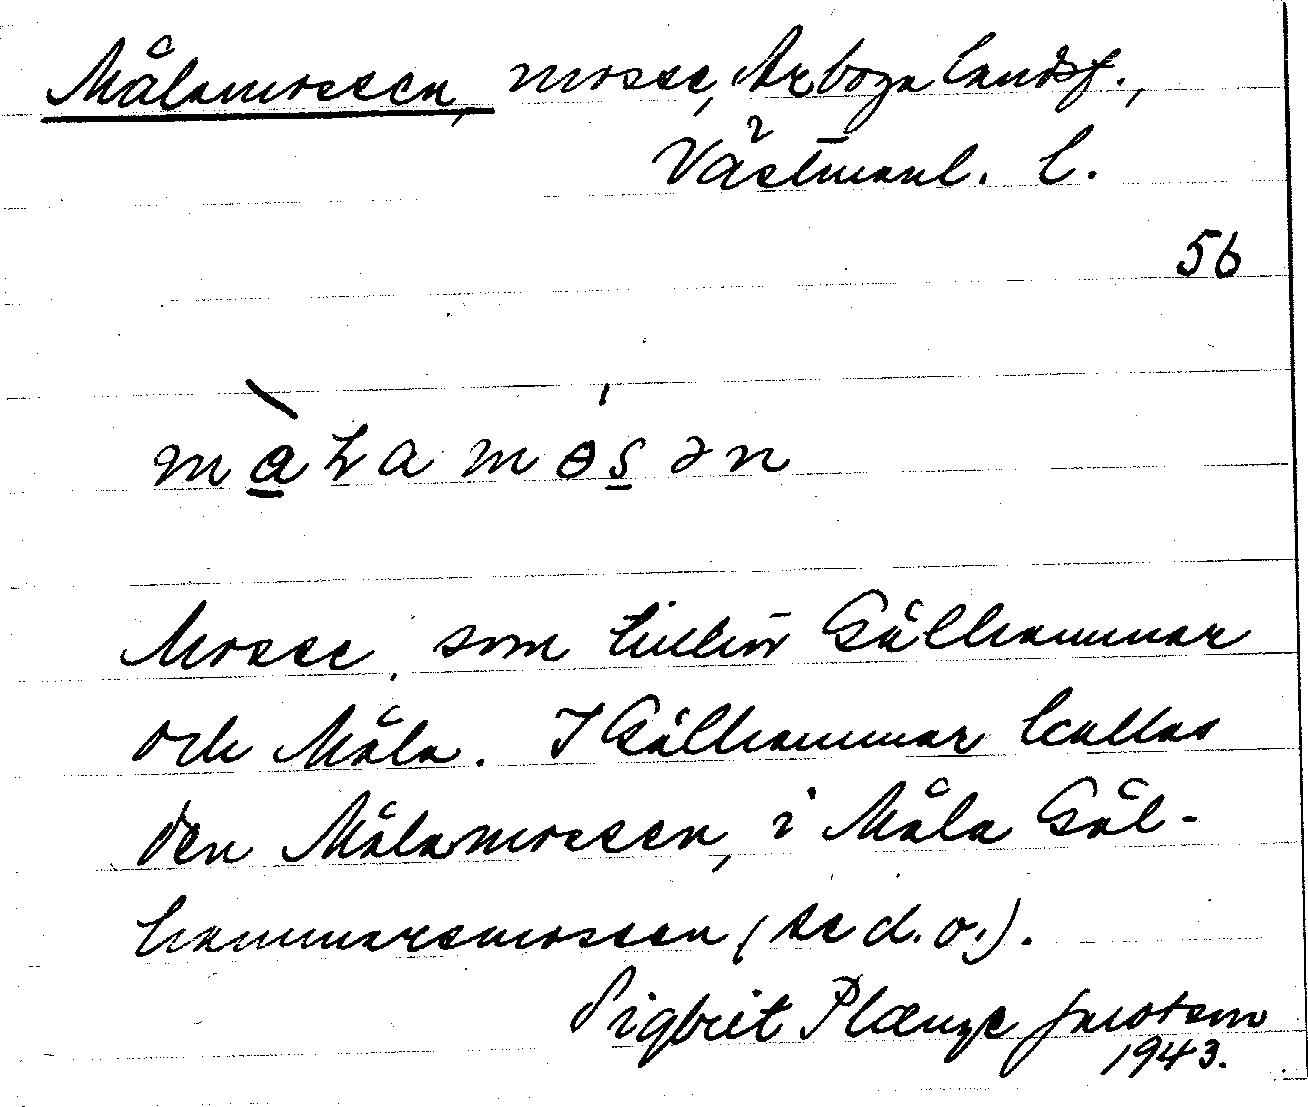 Målamossen, mosse, Arboga landsf.,
Västmanl. l.
56
màɬamɵsən
Mosse, som tillhör Gålhammar
och Måla. I Gålhammar kallas
den Målamossen, i Måla Gål-
hammarsmossen (se d.o.).
Sigbrit Plænge Jacobson
1943.